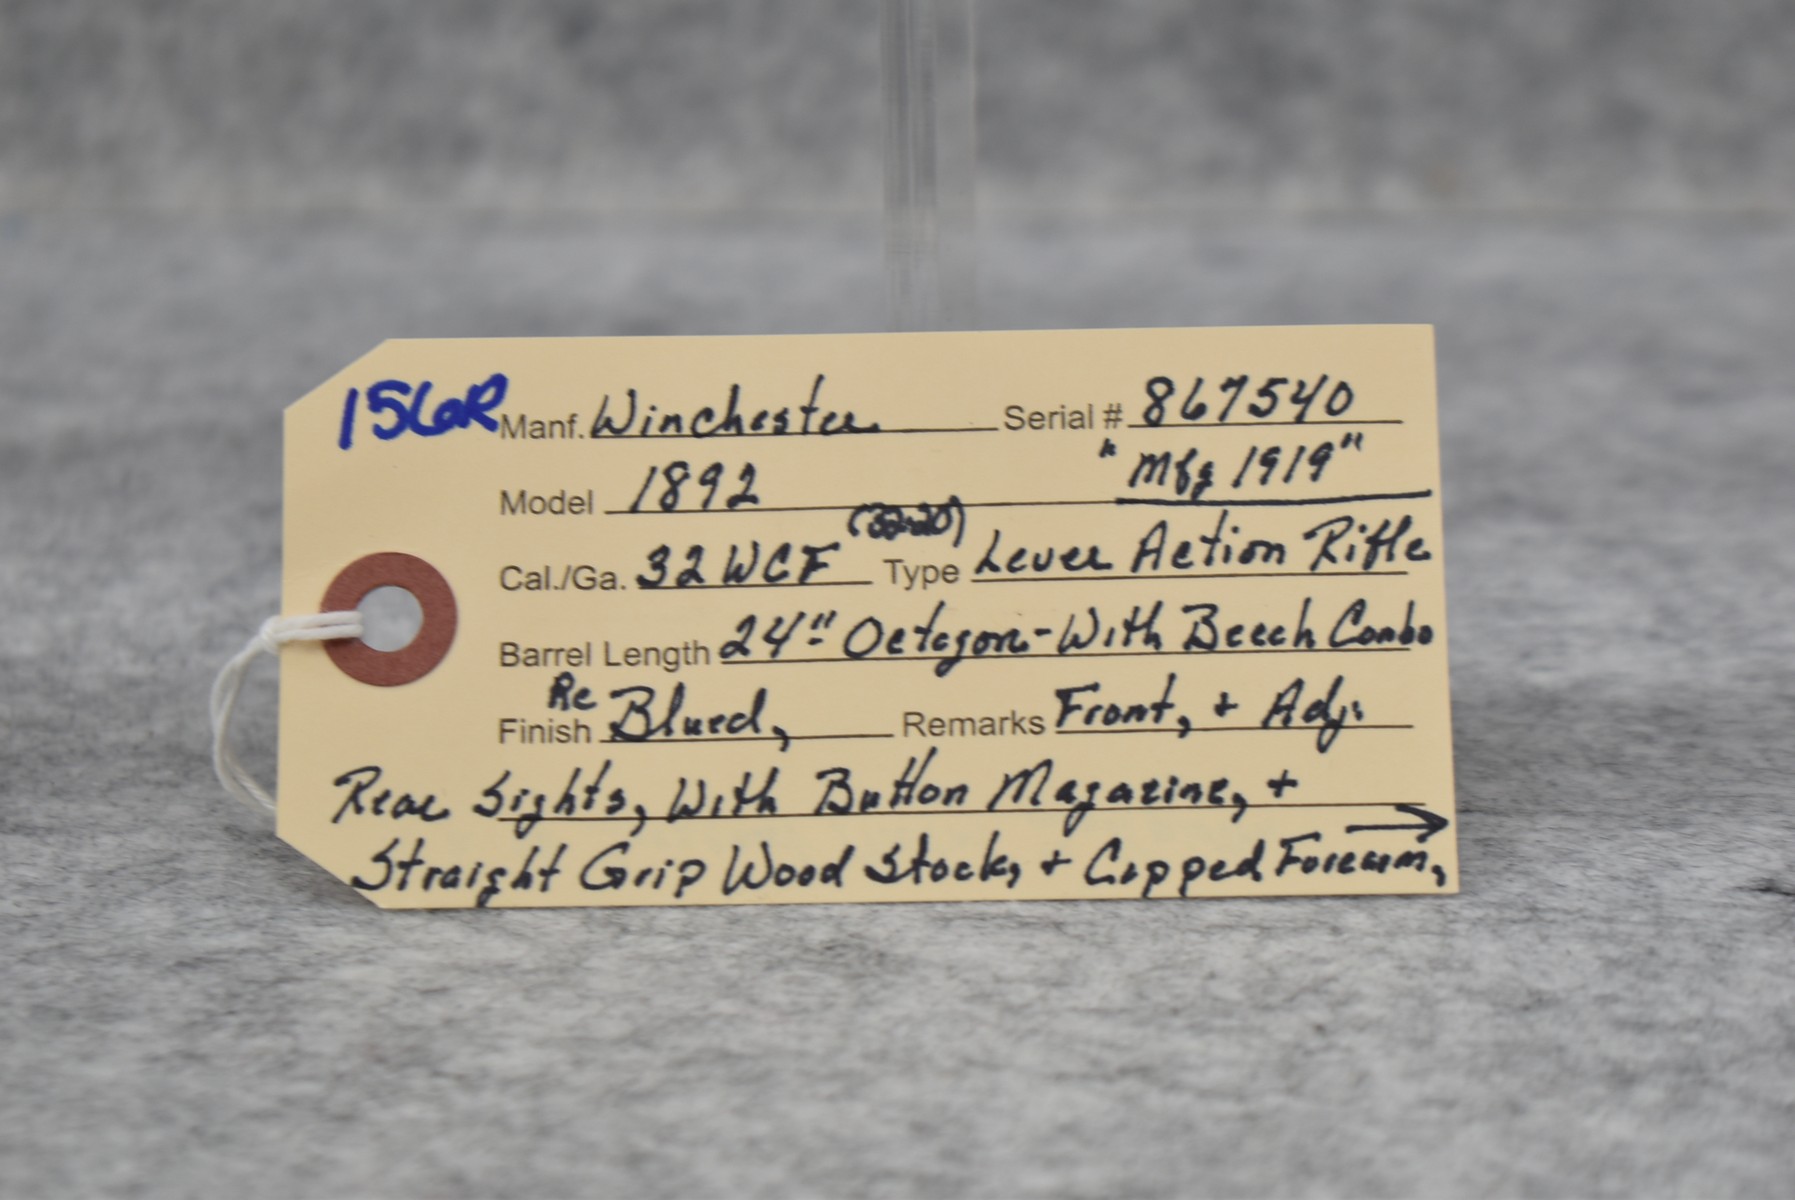 156R Manf. Winchester Serial # 867540
Model 1892 "Mfg 1919"
Cal./Ga. 32 WCF (32-20) Type Lever Action Rifle
Barrel Length 24" Octagon-With Beech Combo
Finish Re Blued, Remarks Front, + Adj.
Rear Sights, With Button Magazine, +
Straight Grip Wood Stock, + Capped Forearm, →